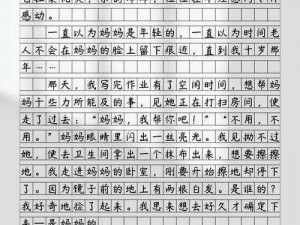 感动。
一直以为妈妈是年轻的，一直以为时间老
人不会在妈妈的脸上留下痕迹，直到我十岁那
年……
那天，我写完作业有了空闲时间，想帮妈
妈干些力所能及的事，见她正在打扫房间，便
走了过去：“妈妈，我帮你吧！”“不用，不
用。”妈妈眼睛里闪出一丝亮光。我见拗不过
她，便去卫生间拿出一个抹布出来，想要擦擦
地。我走进妈妈的卧室，刚要开始擦地却停下
了。因为镜子前的地上有两根白发。是谁的？
我好奇地捡了起来。我思来想去好久才确定下
来—是妈妈的